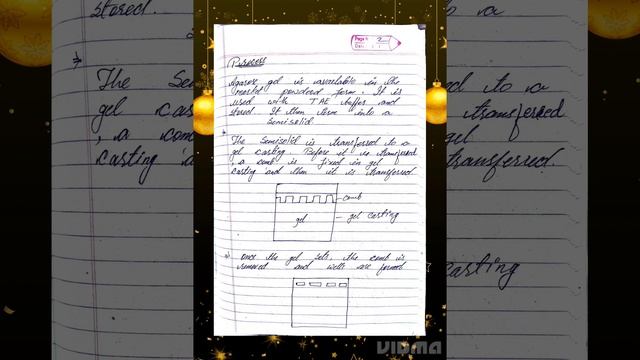 Page: 2
Date:
Process
Agarose gel is available in the
market powdered form. It is
used with TAE buffer and
stored. It then turn into a
semisolid.
The semisolid is transferred to a
gel casting. Before it is transferred
, a comb is fixed in gel
casting and then it is transferred
comb
gel casting
gel
Once the gel sets, the comb is
removed and wells are formed
stored.
The Sem
gel cast
, a com
casting a
to a
transferred
gel
transferred
casting
VIDMA